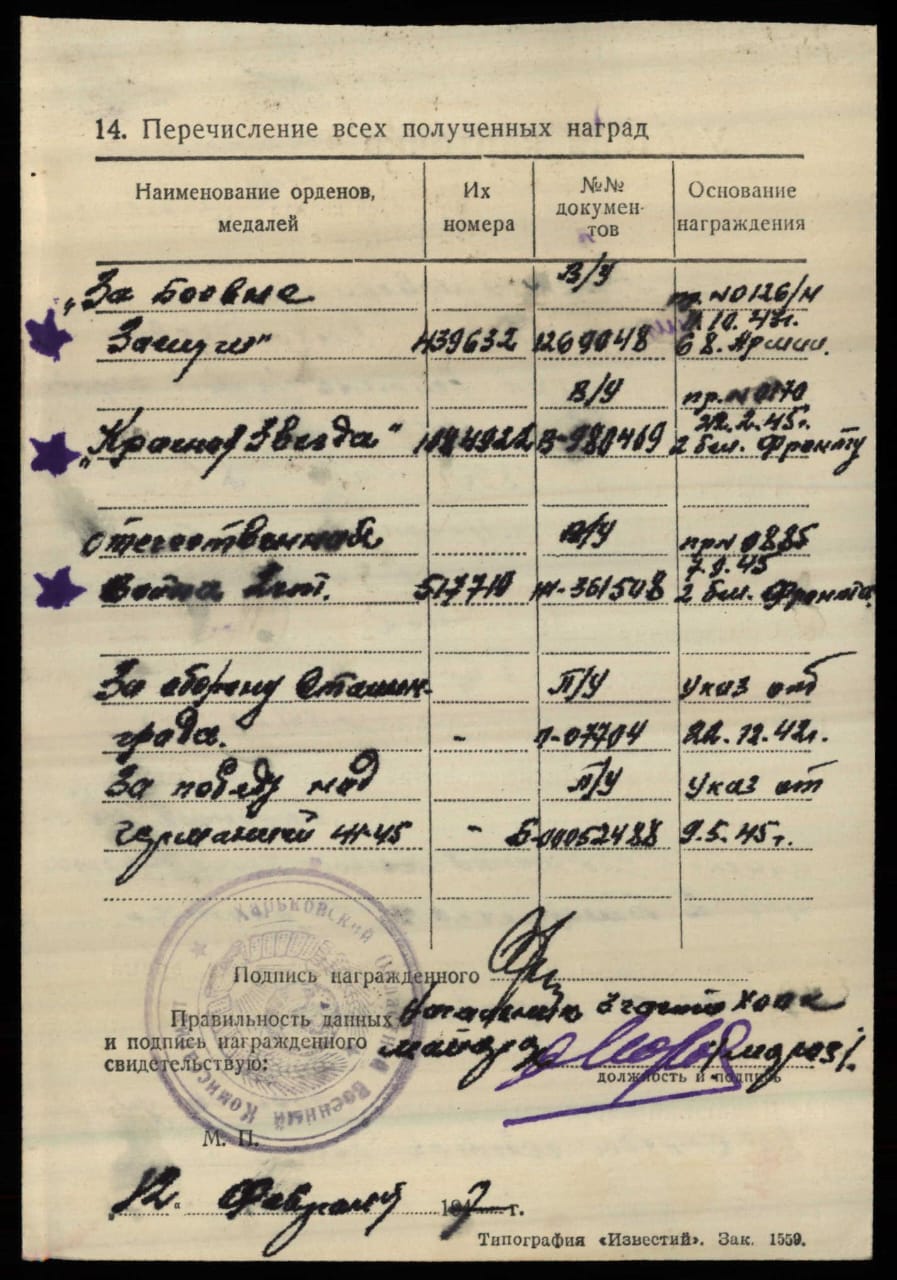 14. Перечисление всех полученных наград
Наименование орденов, медалей
Их номера
№№ документов
Основание награждения
В/У
„За боевые
пр. № 0126/н
10. 43г.
Заслуги"
439632
1269048
68. Армии.
В/У
пр. № 0170
22.2.45г.
„Красной Звезда"
В-980469
2 бел. Фронту
Отечественной
В/У
пр № 0885
45
Война 2 ст.
517710
361508
2 бел. Фронта
За оборону Сталин-
П/У
Указ от
града.
-
07704
22.12.42г.
За победу над
П/У
Указ от
Германией 41-45
-
Б-00052488
9.5.45г.
Харьковский Областной Военный Комиссариат
Подпись награжденного
Правильность данных
и подпись награжденного
свидетельствую:
Начальник 3 части ХОВК
майор
должность и подпись
М. П.
12. Февраля 1947 г.
Типография «Известий». Зак. 1559.